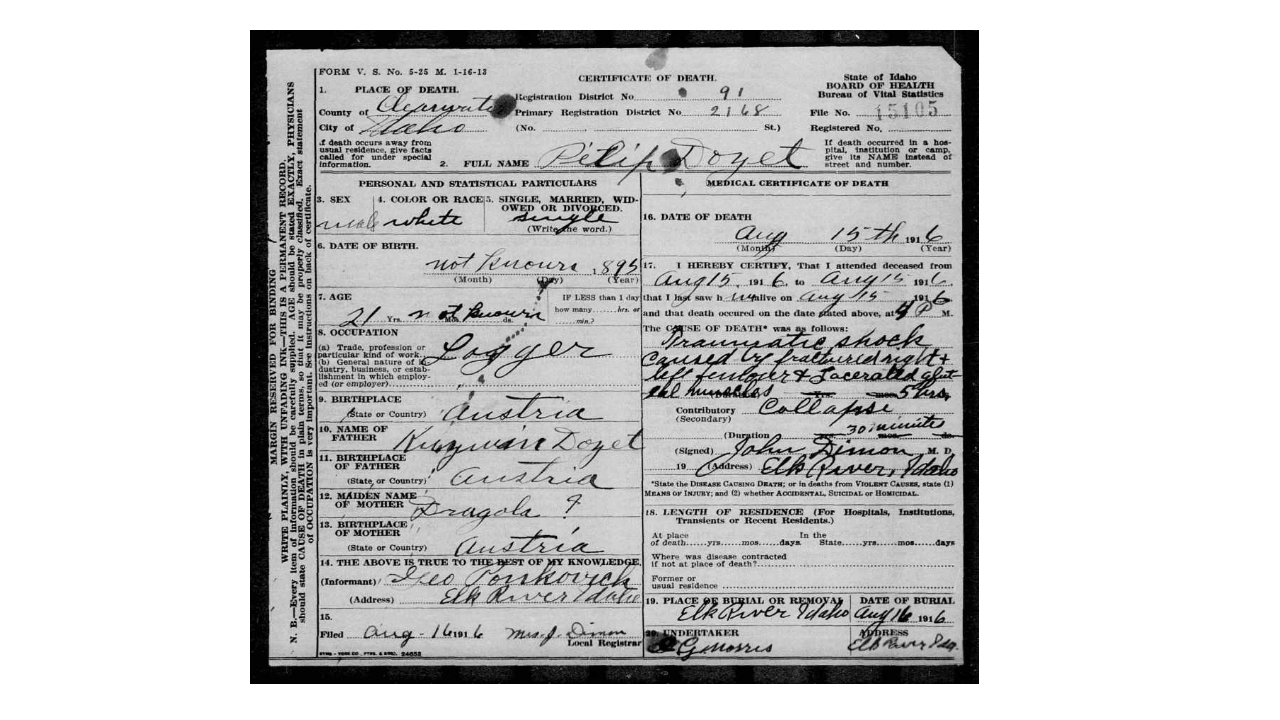 FORM V. S. No. 5-25 M. 1-16-13
CERTIFICATE OF DEATH.
State of Idaho
BOARD OF HEALTH
Bureau of Vital Statistics
File No. 15105
Registered No.
1. PLACE OF DEATH.
County of Clearwater
City of Idaho
Registration District No 91
Primary Registration District No 2168
(No. St.)
If death occurs away from
usual residence, give facts
called for under special
information.
2. FULL NAME Pilip Doyet
If death occurred in a hos-
pital, institution or camp,
give its NAME instead of
street and number.
MARGIN RESERVED FOR BINDING
WRITE PLAINLY, WITH UNFADING INK—THIS IS A PERMANENT RECORD.
N. B.—Every item of information should be carefully supplied. AGE should be stated EXACTLY, PHYSICIANS
should state CAUSE OF DEATH in plain terms, so that it may be properly classified. Exact statement
of OCCUPATION is very important. See instructions on back of certificate.
PERSONAL AND STATISTICAL PARTICULARS
3. SEX
male
4. COLOR OR RACE
white
5. SINGLE, MARRIED, WID-
OWED OR DIVORCED.
single
(Write the word.)
6. DATE OF BIRTH.
not known 1895
(Month) (Day) (Year)
7. AGE
21 Yrs. not known Mos. ds.
IF LESS than 1 day
how many hrs. or
min.?
8. OCCUPATION
(a) Trade, profession or
particular kind of work
(b) General nature of in-
dustry, business, or estab-
lishment in which employ-
ed (or employer)
Logger
9. BIRTHPLACE
(State or Country) Austria
10. NAME OF
FATHER Doyet
11. BIRTHPLACE
OF FATHER
(State, or Country) Austria
12. MAIDEN NAME
OF MOTHER Dragola ?
13. BIRTHPLACE
OF MOTHER
(State or Country) Austria
14. THE ABOVE IS TRUE TO THE BEST OF MY KNOWLEDGE.
(Informant) Geo Ponkovich
(Address) Elk River Idaho
15.
Filed Aug-16 1916 Mrs. J. Dimon
Local Registrar
MEDICAL CERTIFICATE OF DEATH
16. DATE OF DEATH
Aug 15th 1916
(Month) (Day) (Year)
17. I HEREBY CERTIFY, That I attended deceased from
Aug 15, 1916, to Aug 15 1916,
that I last saw him alive on Aug 15 1916
and that death occurred on the date stated above, at 4 P M.
The CAUSE OF DEATH* was as follows:
Traumatic shock
caused by fractured right +
left femur + Lacerated glut
eal muscles Yrs. mos. 5 hrs.
Contributory Collapse
(Secondary)
(Duration yrs. 30 minutes mos. ds.
(Signed) John Dimon, M. D.
19 (Address) Elk River, Idaho
*State the DISEASE CAUSING DEATH; or in deaths from VIOLENT CAUSES, state (1)
MEANS OF INJURY; and (2) whether ACCIDENTAL, SUICIDAL or HOMICIDAL.
18. LENGTH OF RESIDENCE (For Hospitals, Institutions,
Transients or Recent Residents.)
At place In the
of death yrs. mos. days State yrs. mos. days
Where was disease contracted
if not at place of death?
Former or
usual residence
19. PLACE OF BURIAL OR REMOVAL
Elk River Idaho
DATE OF BURIAL
Aug 16 1916
20. UNDERTAKER
G Morris
ADDRESS
Elk River Ida.